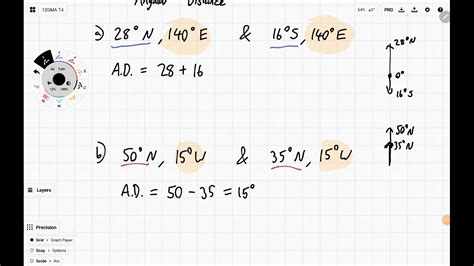 12GMA T4
54%
PRO
Angular Distance
a) 28° N, 140° E & 16° S, 140° E
28° N
A.D. = 28 + 16
0°
16° S
b) 50° N, 15° W & 35° N, 15° W
50° N
35° N
A.D. = 50 - 35 = 15°
Layers
Precision
Grid > Graph Paper
Snap > Options
Guide > Arc